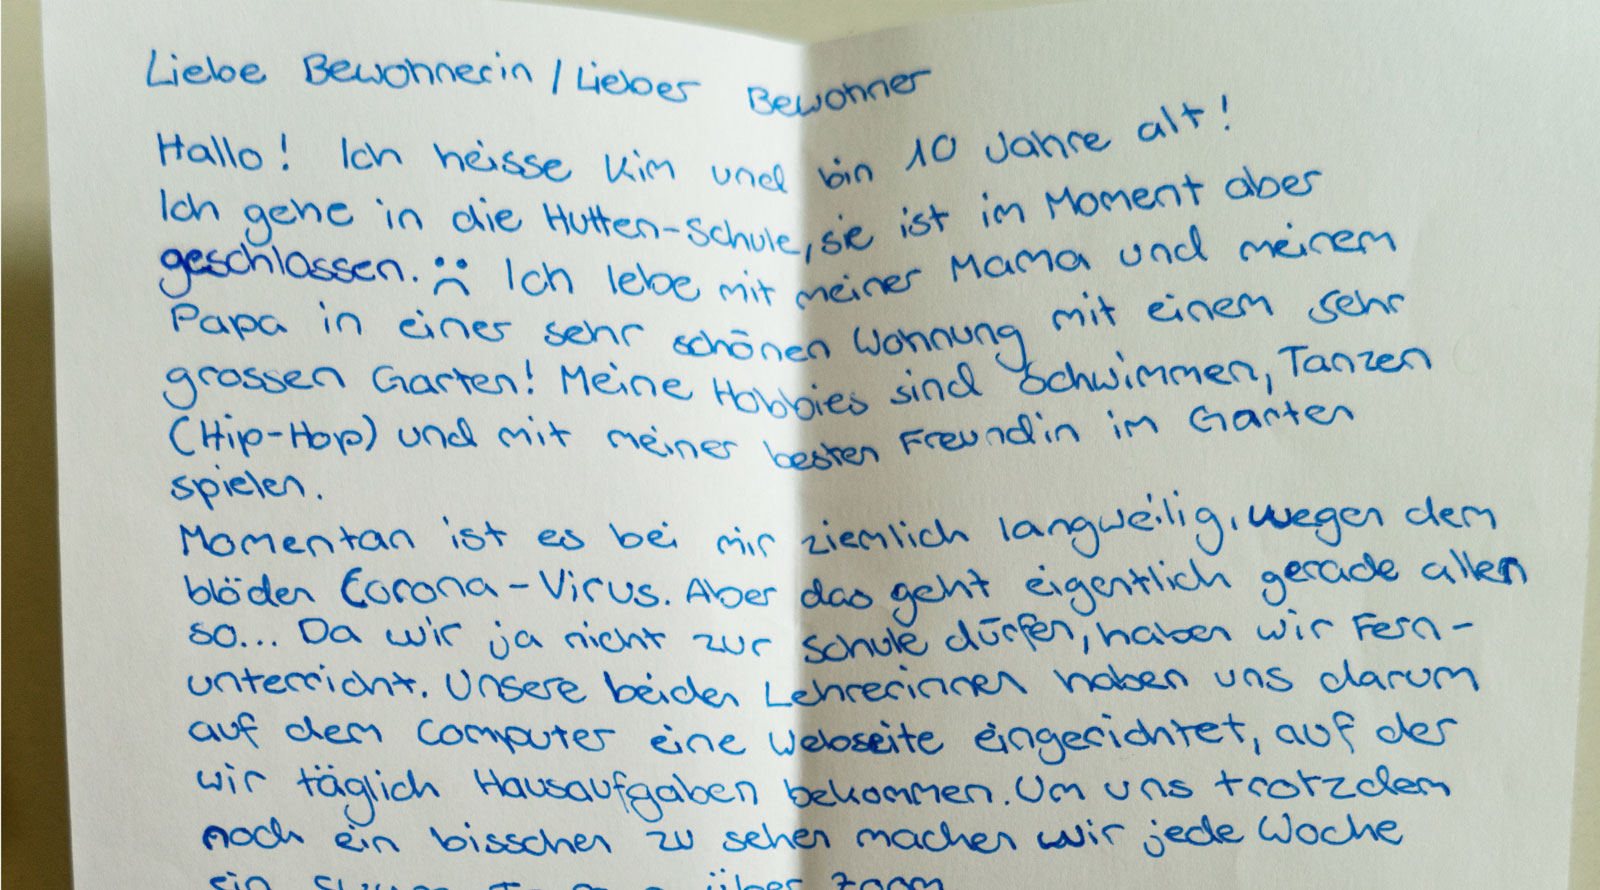 Liebe Bewohnerin / Lieber Bewohner
Hallo! Ich heisse Kim und bin 10 Jahre alt!
Ich gehe in die Hutten-Schule, sie ist im Moment aber
geschlossen. :( Ich lebe mit meiner Mama und meinem
Papa in einer sehr schönen Wohnung mit einem sehr
grossen Garten! Meine Hobbies sind Schwimmen, Tanzen
(Hip-Hop) und mit meiner besten Freundin im Garten
spielen.
Momentan ist es bei mir ziemlich langweilig, wegen dem
blöden Corona-Virus. Aber das geht eigentlich gerade allen
so... Da wir ja nicht zur Schule dürfen, haben wir Fern-
unterricht. Unsere beiden Lehrerinnen haben uns darum
auf dem Computer eine Webseite eingerichtet, auf der
wir täglich Hausaufgaben bekommen. Um uns trotzdem
noch ein bisschen zu sehen machen wir jede Woche
ein über Zoom